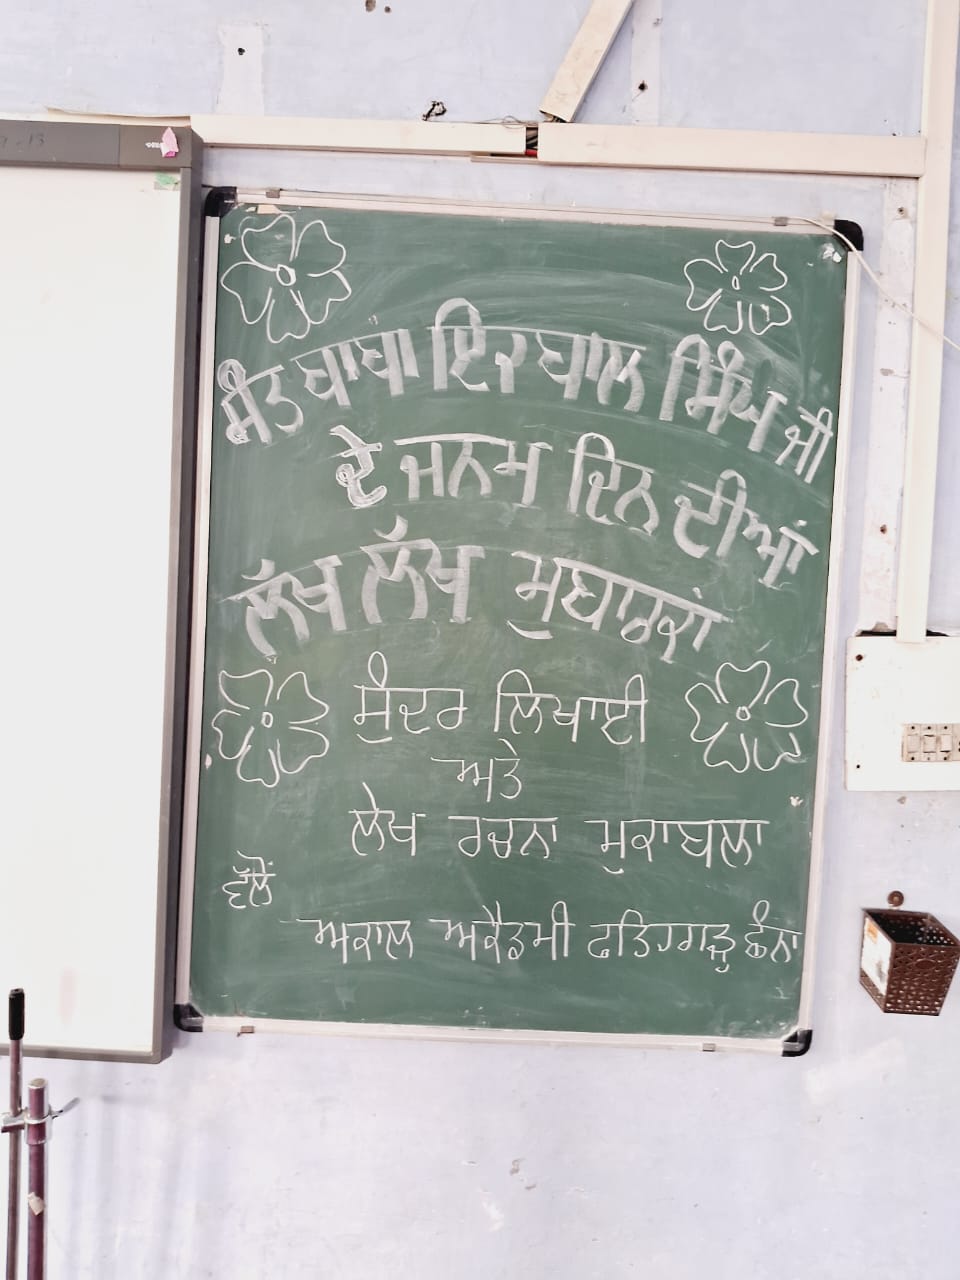 ਸੰਤ ਬਾਬਾ ਇਕਬਾਲ ਸਿੰਘ ਜੀ
ਦੇ ਜਨਮ ਦਿਨ ਦੀਆਂ
ਲੱਖ ਲੱਖ ਮੁਬਾਰਕਾਂ
ਸੁੰਦਰ ਲਿਖਾਈ
ਅਤੇ
ਲੇਖ ਰਚਨਾ ਮੁਕਾਬਲਾ
ਵੱਲੋਂ
ਅਕਾਲ ਅਕੈਡਮੀ ਫਤਿਹਗੜ੍ਹ ਛੰਨਾ